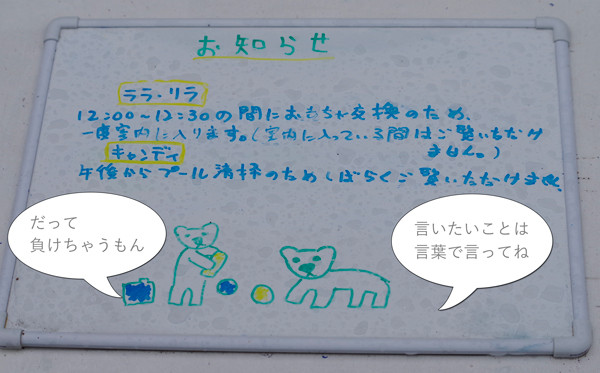 お知らせ
ララ・リラ
12:00~12:30の間におもちゃ交換のため、
一度室内に入ります。(室内に入っている間はご覧いただけ
ません。)
キャンディ
午後からプール清掃のためしばらくご覧いただけません。
だって
負けちゃうもん
言いたいことは
言葉で言ってね